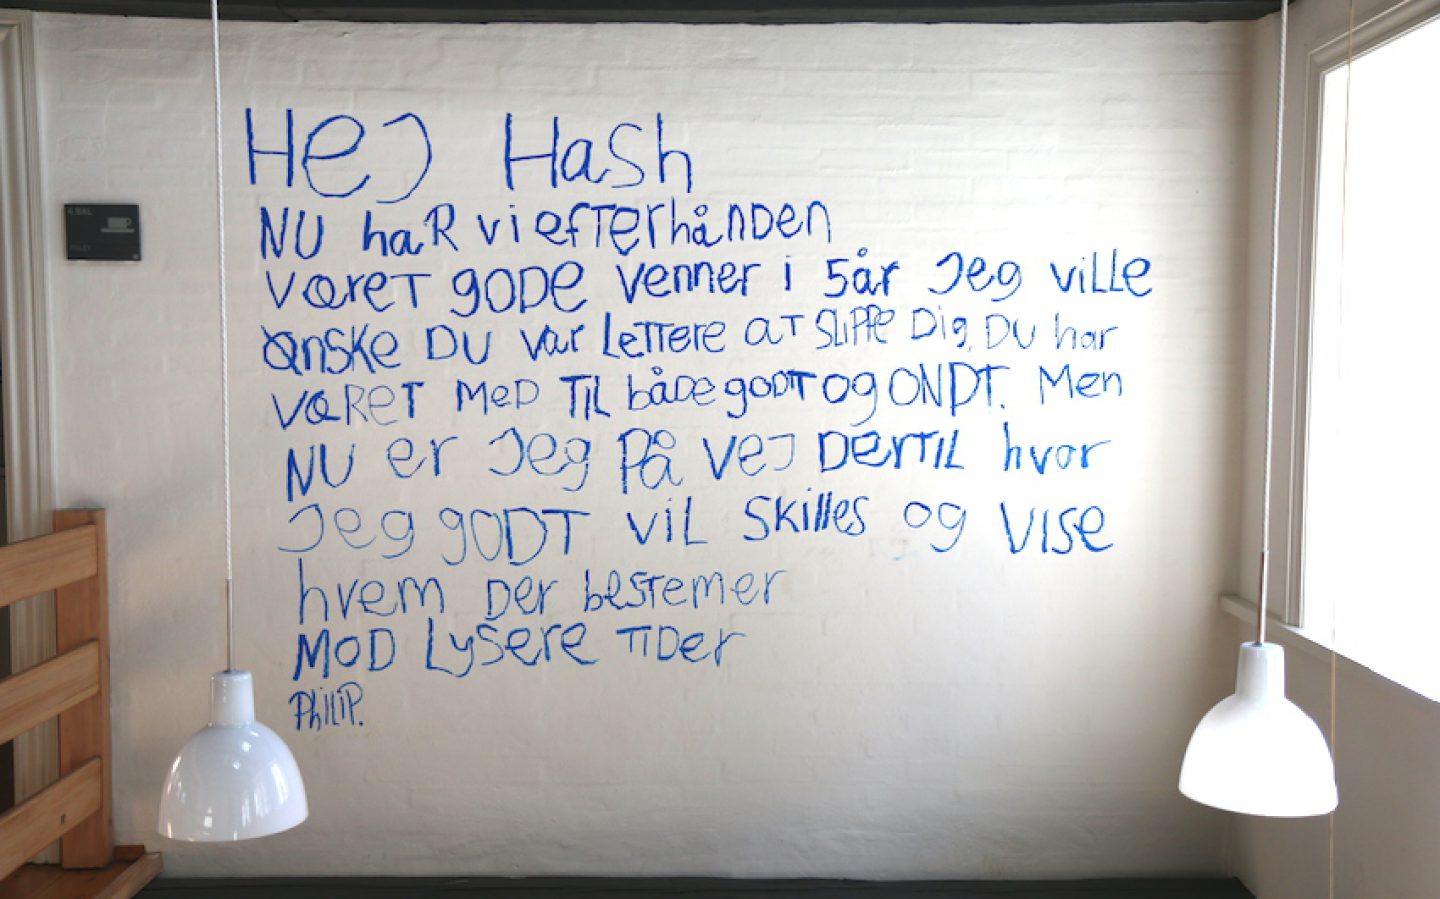 Hej Hash
NU haR vi efTerhånDen
væreT goDe venner i 5 år Jeg viLLe
ønske DU var LeTTere aT SLiPPe Dig. DU har
væReT MeD TiL båDe goDT og ONDT. Men
NU er Jeg På vej DerTiL hvor
Jeg goDT viL Skilles og Vise
hvem Der besTemer
MoD Lysere TiDer
PhiLiP.
4.SAL
TOILET